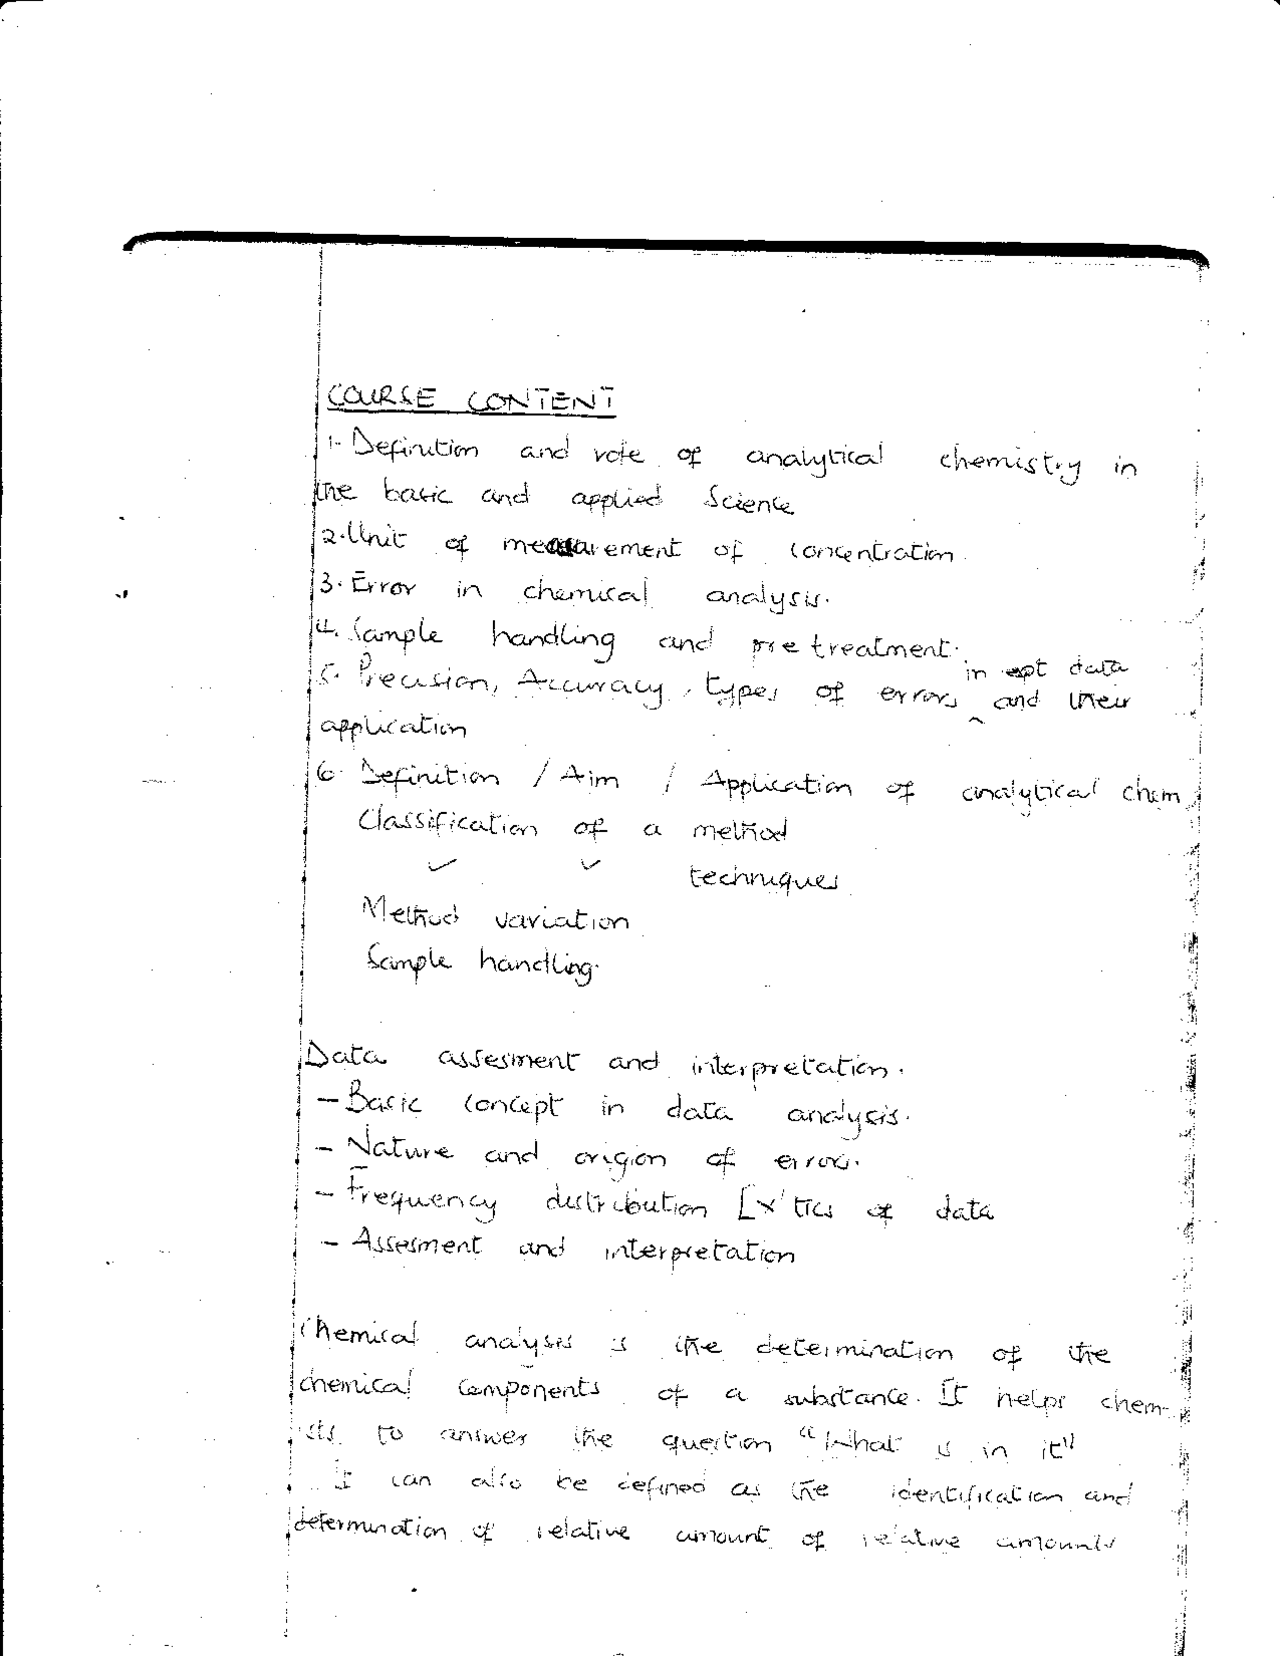 COURSE CONTENT
1. Definition and role of analytical chemistry in
the basic and applied Science
2. Unit of measurement of concentration.
3. Error in chemical analysis.
4. Sample handling and pretreatment.
in ept data
5. Precision, Accuracy, types of errors ^ and their
application
6. Definition / Aim / Application of analytical chem
Classification of a method
✓ ✓ techniques
Method variation
Sample handling.
Data assesment and interpretation.
- Basic concept in data analysis.
- Nature and origion of error.
- Frequency distribution [x'tics of data
- Assesment and interpretation
Chemical analysis is the determination of the
chemical components of a substance. It helps chem-
ists to answer the question "What is in it"
It can also be defined as the identification and
determination of relative amount of relative amounts